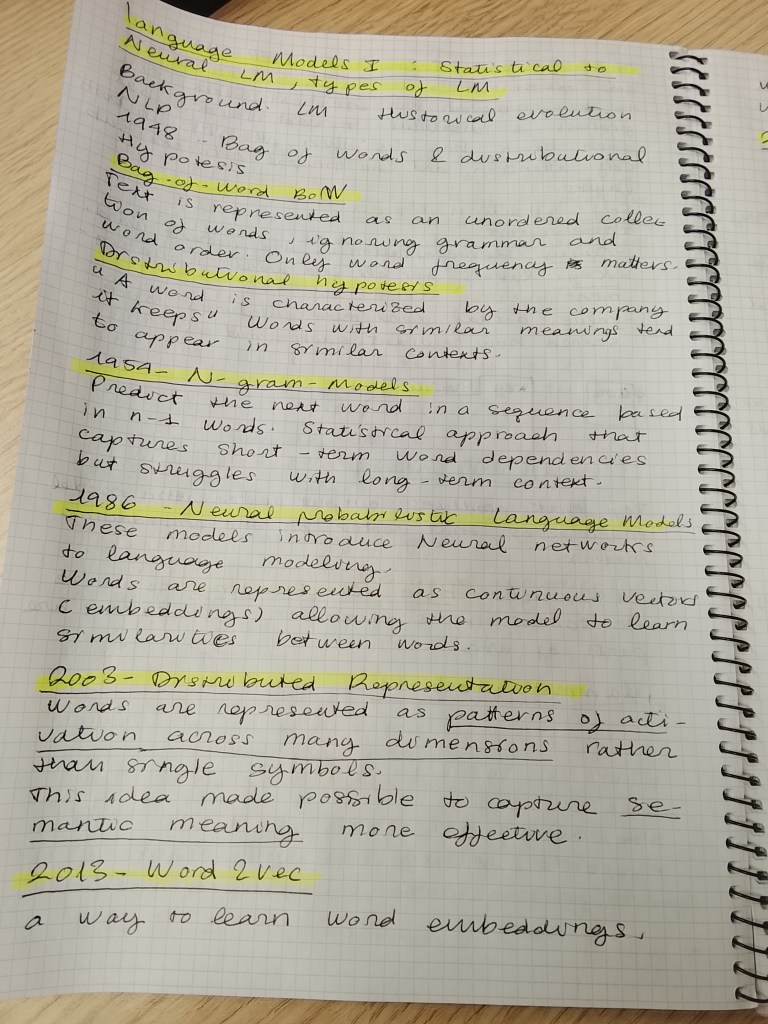 Language Models I : Statistical to
Neural LM, types of LM
Background. LM Historical evolution
NLP
1948 - Bag of words & distributional
Hypotesis
Bag-of-word BoW
Text is represented as an unordered collec
tion of words, ignoring grammar and
word order. Only word frequency matters.
Distributional hypotesis
" A word is characterized by the company
it keeps" Words with similar meanings tend
to appear in similar contexts.
1954- N-gram-Models
Predict the next word in a sequence based
in n-1 words. Statistical approach that
captures short-term word dependencies
but struggles with long-term context.
1986 - Neural probabilistic Language Models
These models introduce Neural networks
to language modeling.
Words are represented as continuous vectors
(embeddings) allowing the model to learn
similarities between words.
2003- Distributed Representation
Words are represented as patterns of acti-
vation across many dimensions rather
than single symbols.
This idea made possible to capture se-
mantic meaning more effective.
2013- Word 2Vec
a way to learn word embeddings.